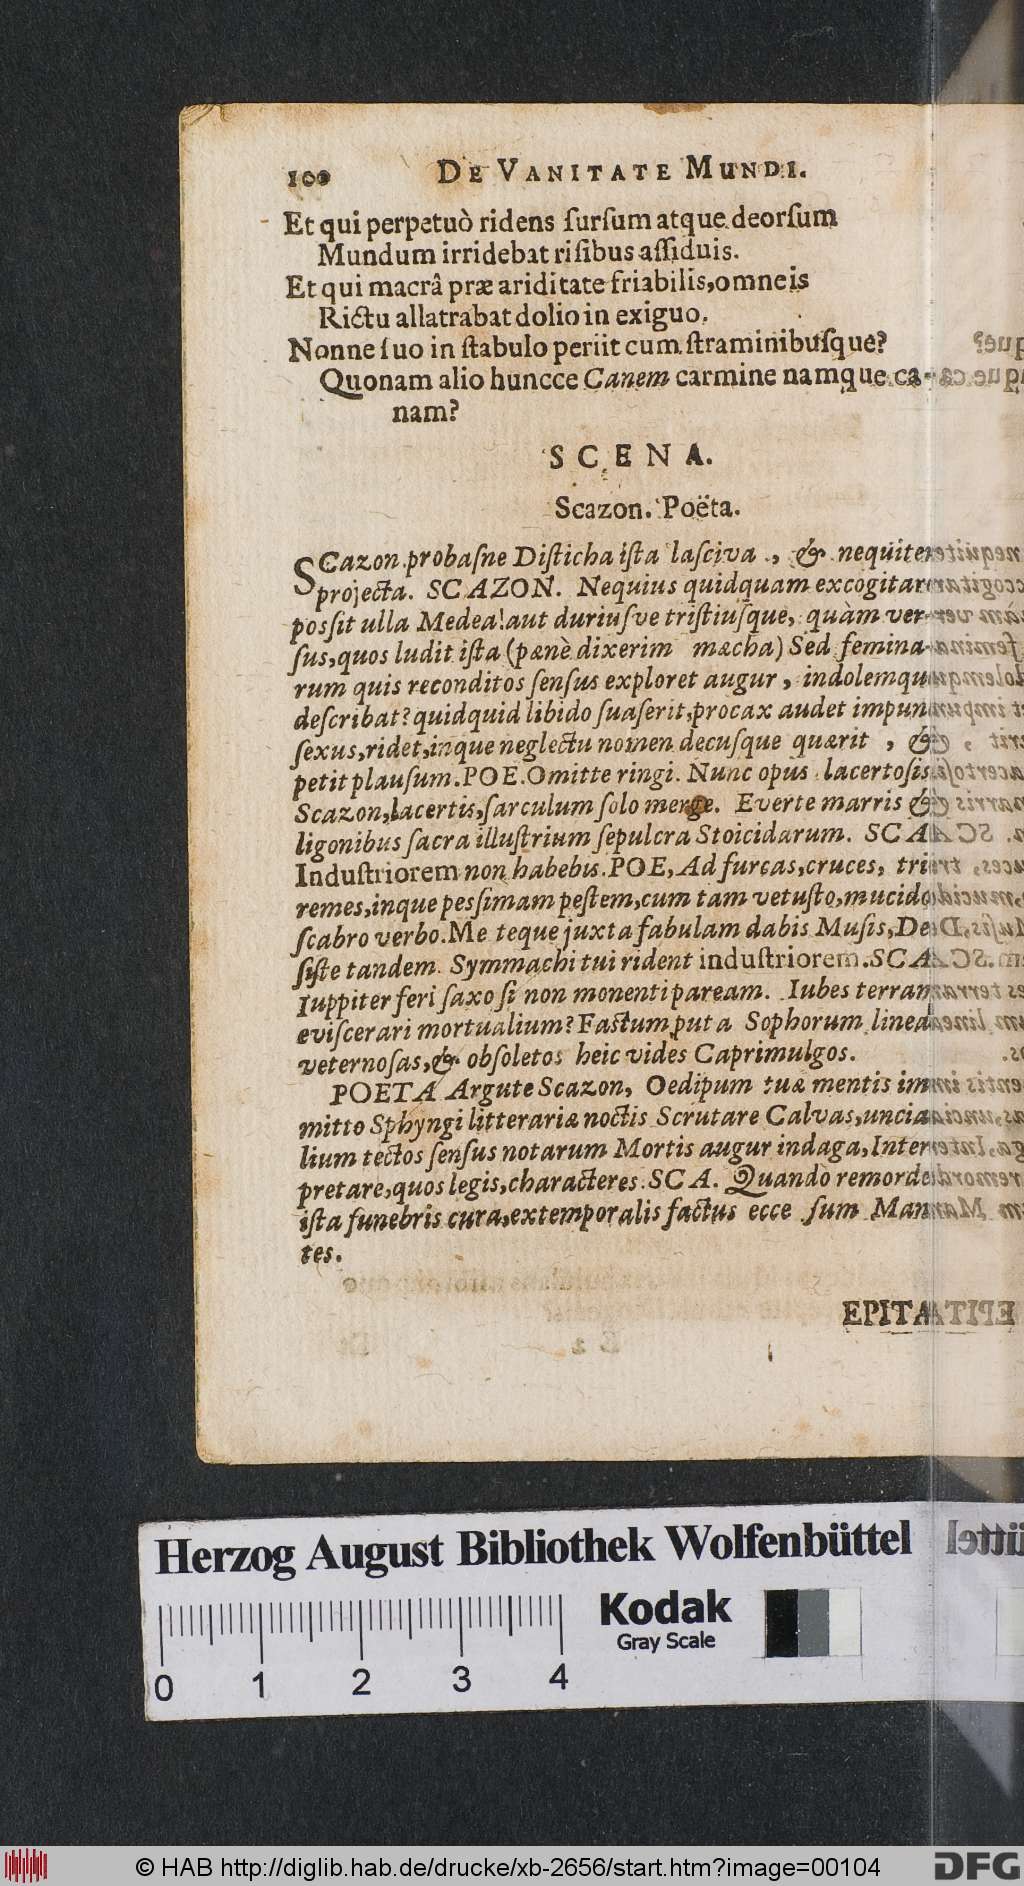 100 DE VANITATE MUNDI.
Et qui perpetuò ridens ſurſum atque deorſum
Mundum irridebat riſibus aſſiduis.
Et qui macrâ præ ariditate friabilis, omneis
Rictu allatrabat dolio in exiguo.
Nonne ſuo in ſtabulo periit cum ſtraminibuſque?
Quonam alio huncce Canem carmine namque ca-
nam?
SCENA.
Scazon. Poëta.
SCazon probaſne Diſticha iſta laſciva, & nequiter
projecta. SCAZON. Nequius quidquam excogitare
poſſit ulla Medea! aut duriuſve triſtiuſque, quàm ver-
ſus, quos ludit iſta (pænè dixerim mæcha) Sed femina-
rum quis reconditos ſenſus exploret augur, indolemque
deſcribat? quidquid libido ſuaſerit, procax audet impune
ſexus, ridet, inque neglectu nomen decuſque quærit, &
petit plauſum. POE. Omitte ringi. Nunc opus lacertoſis
Scazon, lacertis, ſarculum ſolo merge. Everte marris &
ligonibus ſacra illuſtrium ſepulcra Stoicidarum. SCA
Induſtriorem non habebis. POE, Ad furcas, cruces,
remes, inque peſſimam peſtem, cum tam vetuſto, mucido
ſcabro verbo. Me teque juxta fabulam dabis Muſis, De-
ſiſte tandem. Symmachi tui rident induſtriorem. SCA.
Iuppiter feri ſaxo ſi non monenti paream. Iubes terram
eviſcerari mortualium? Faſtum puta Sophorum linea
veternoſas, & obſoletos heic vides Caprimulgos.
POETA Argute Scazon, Oedipum tuæ mentis im-
mitto Sphyngi litterariæ noctis Scrutare Calvas, uncia-
lium tectos ſenſus notarum Mortis augur indaga, Inter-
pretare, quos legis, characteres. SCA. Quando remordet
iſta funebris cura, extemporalis factus ecce ſum Man-
tes.
EPITA
Herzog August Bibliothek Wolfenbüttel
Kodak
Gray Scale
0 1 2 3 4
© HAB http://diglib.hab.de/drucke/xb-2656/start.htm?image=00104
DFG